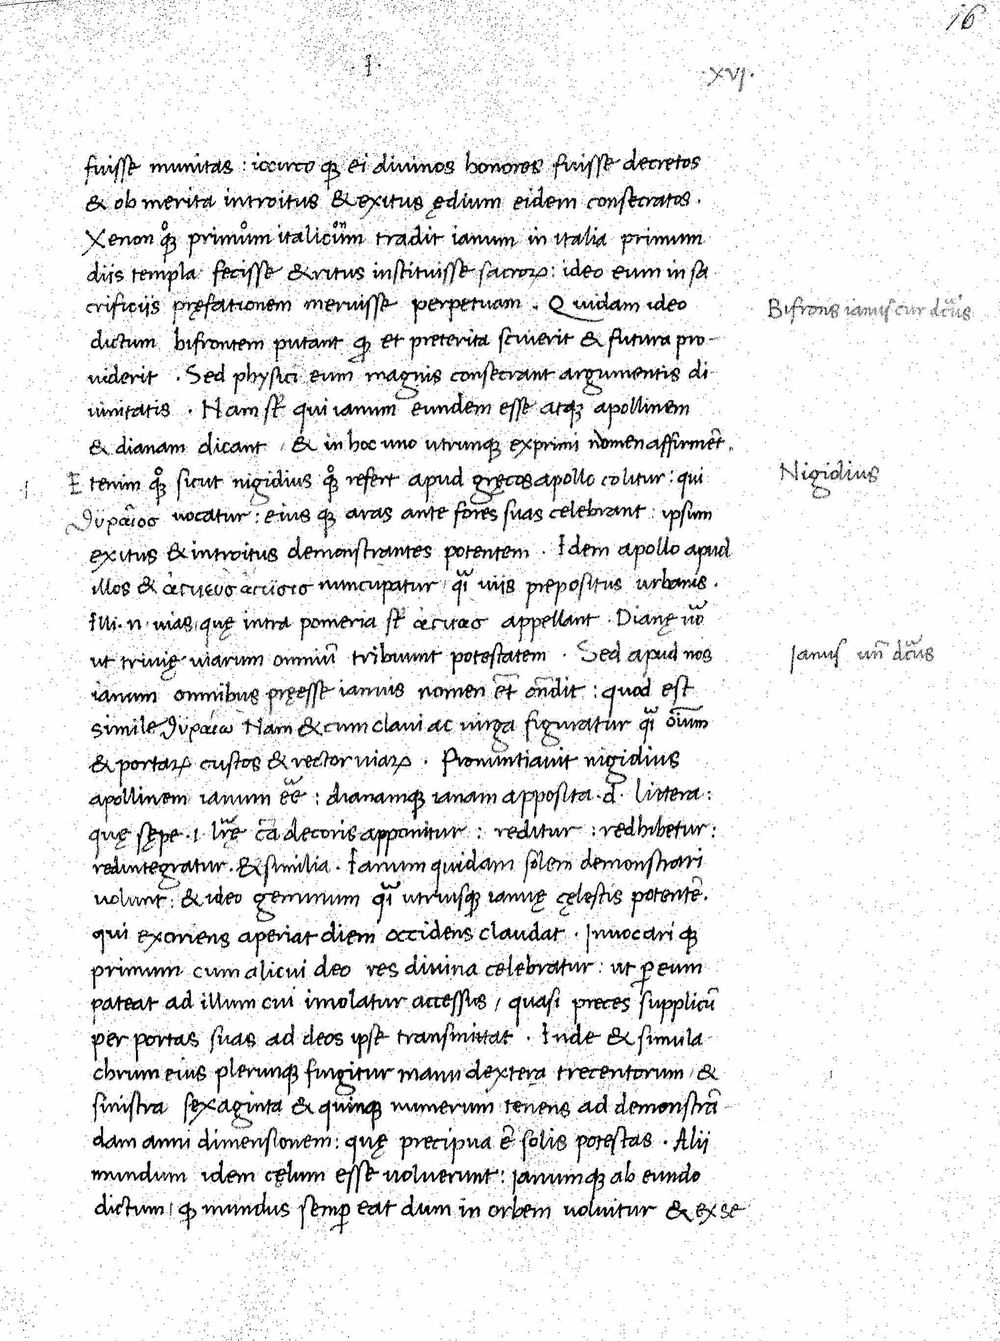 16
.I.
.XVI.
fuisse munitas : iccirco qꝫ ei diuinos honores fuisse decretos
& ob merita introitus & exitus ędium eidem consecratos .
Xenon qͦꝫ primum italicum̃ tradit ianum in italia primum
diis templa fecisse & ritus instituisse sacroꝝ : ideo eum in sa
crificiis pręfationem meruisse perpetuam . Quidam ideo
Bifrons ianus cur dc̃us
dictum bifrontem putant ꝙ et preterita sciuerit & futura pro-
uiderit . Sed physici eum magnis consecrant argumentis di
uinitatis . Nam st̃ qui ianum eundem esse atqꝫ apollinem
& dianam dicant / & in hoc uno utrunqꝫ exprimi nomen affirmẽt .
Etenim qͦꝫ sicut nigidius qͦꝫ refert apud gręcos apollo colitur : qui
Nigidius
θυραῖος uocatur : eius qꝫ aras ante fores suas celebrant : ipsum
exitus & introitus demonstrantes potentem . Idem apollo apud
illos & nuncupatur / qĩ uiis prepositus urbanis .
Illi . n . uias, quę intra pomeria st̃ ἀγυιας appellant . Dianę uõ
ut triuię uiarum omniũ tribuunt potestatem . Sed apud nos
Ianus uñ dc̃us
ianum omnibus pręesse ianuis nomen et̃ oñdit : quod est
simile θυραίω Nam & cum claui ac uirga figuratur qĩ oĩum
& portaꝝ custos & rector uiaꝝ . Pronuntiauit nigidius
apollinem ianum eẽ : dianamqꝫ ianam apposita .d. littera :
quę sępe .i. lr̃ę cã decoris apponitur : reditur : redhibetur :
redintegratur . & similia . Ianum quidam solem demonstrari
uolunt : & ideo geminum qĩ utriusqꝫ ianuę cęlestis potentẽ .
qui exoriens aperiat diem occidens claudat . Inuocari qꝫ
primum cum alicui deo res diuina celebratur : ut ꝑ eum
pateat ad illum cui imolatur accessus / quasi preces supplicũ
per portas suas ad deos ipse transmittat . Inde & simula
chrum eius plerunqꝫ fingitur manu dextera trecentorum / &
sinistra sexaginta & quinqꝫ numerum tenens ad demonstrã-
dam anni dimensionem : quę precipua ẽ solis potestas . Alij
mundum idem cęlum esse uoluerunt : ianumqꝫ ab eundo
dictum / ꝙ mundus semꝑ eat dum in orbem uoluitur & ex se